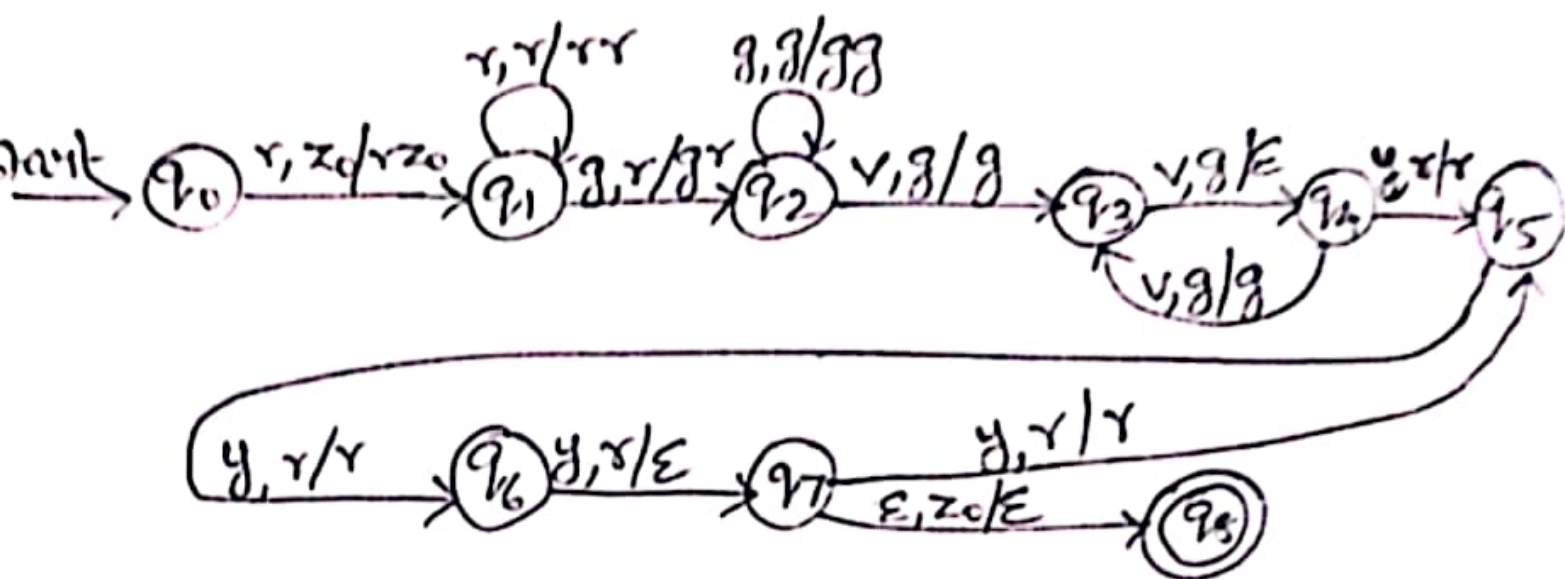 r, r/rr g, g/gg
q0 r, z0/rz0 q1 g, r/gr q2 v, g/g q3 v, g/ε q4 r/r q5
v, g/g
y, r/r q6 y, r/ε q7 y, r/r
ε, z0/ε